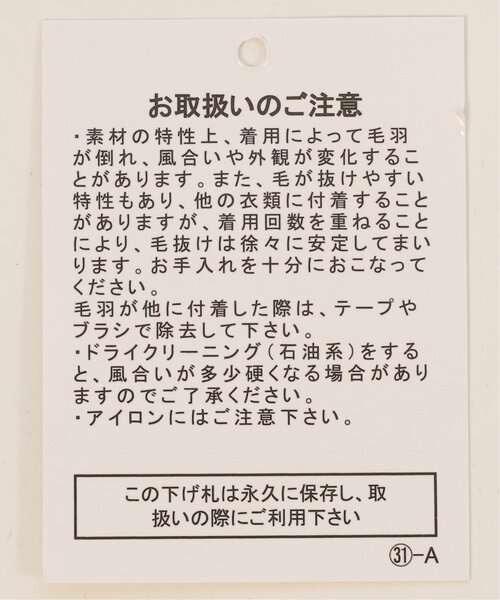 お取扱いのご注意
・素材の特性上、着用によって毛羽
が倒れ、風合いや外観が変化するこ
とがあります。また、毛が抜けやすい
特性もあり、他の衣類に付着すること
がありますが、着用回数を重ねること
により、毛抜けは徐々に安定してまい
ります。お手入れを十分におこなって
ください。
毛羽が他に付着した際は、テープや
ブラシで除去して下さい。
・ドライクリーニング（石油系）をする
と、風合いが多少硬くなる場合があり
ますのでご了承ください。
・アイロンにはご注意下さい。
この下げ札は永久に保存し、取
扱いの際にご利用下さい
㉛-A